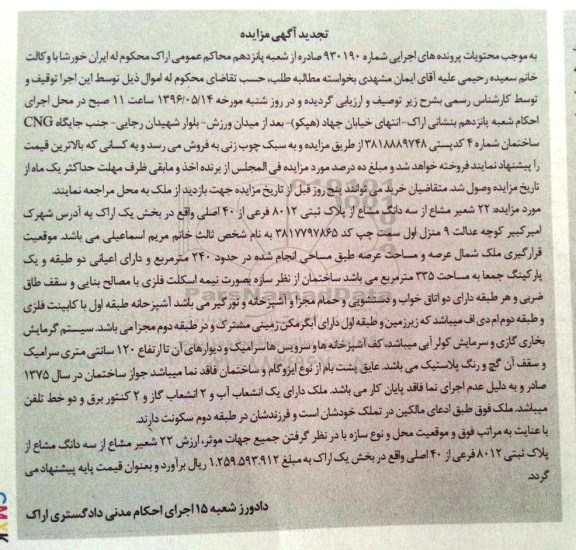 تجدید آگهی مزایده
به موجب محتویات پرونده های اجرایی شماره ۹۳۰۱۹۰ صادره از شعبه پانزدهم محاکم عمومی اراک محکوم له ایران خورشا با وکالت
خانم سعیده رحیمی علیه آقای ایمان مشهدی بخواسته مطالبه طلب، حسب تقاضای محکوم له اموال ذیل توسط این اجرا توقیف و
توسط کارشناس رسمی بشرح زیر توصیف و ارزیابی گردیده و در روز شنبه مورخه ۱۳۹۶/۰۵/۱۴ ساعت ۱۱ صبح در محل اجرای
احکام شعبه پانزدهم بنشانی اراک-انتهای خیابان جهاد (هپکو)- بعد از میدان ورزش- بلوار شهیدان رجایی- جنب جایگاه CNG
ساختمان شماره ۴ کدپستی ۳۸۱۸۸۸۹۷۴۸ از طریق مزایده و به سبک چوب زنی به فروش می رسد و به کسانی که بالاترین قیمت
را پیشنهاد نمایند فروخته خواهد شد و مبلغ ده درصد مورد مزایده فی المجلس از برنده اخذ و مابقی ظرف مهلت حداکثر یک ماه از
تاریخ مزایده وصول شد. متقاضیان خرید می توانند پنج روز قبل از تاریخ مزایده جهت بازدید از ملک به محل مراجعه نمایند.
مورد مزایده: ۲۲ شعیر مشاع از سه دانگ مشاع از پلاک ثبتی ۸۰۱۲ فرعی از ۴۰ اصلی واقع در بخش یک اراک به آدرس شهرک
امیرکبیر کوچه عدالت ۹ منزل اول سمت چپ کد ۳۸۱۷۷۹۷۸۶۵ به نام شخص ثالث خانم مریم اسماعیلی می باشد. موقعیت
قرارگیری ملک شمال عرصه و مساحت عرصه طبق مساحی انجام شده در حدود ۲۴۰ مترمربع و دارای اعیانی دو طبقه و یک
پارکینگ جمعا به مساحت ۳۳۵ مترمربع می باشد ساختمان از نظر سازه بصورت نیمه اسکلت فلزی با مصالح بنایی و سقف طاق
ضربی و هر طبقه دارای دو اتاق خواب و دستشویی و حمام مجزا و آشپزخانه و نورگیر می باشد آشپزخانه طبقه اول با کابینت فلزی
و طبقه دوم ام دی اف میباشد که زیرزمین و طبقه اول دارای آبگرمکن زمینی مشترک و در طبقه دوم مجزا می باشد. سیستم گرمایش
بخاری گازی و سرمایش کولر آبی میباشد، کف آشپزخانه ها و سرویس ها سرامیک و دیوارهای آن تا ارتفاع ۱۲۰ سانتی متری سرامیک
و سقف آن گچ و رنگ پلاستیک می باشد. عایق پشت بام از نوع ایزوگام و ساختمان فاقد نما میباشد جواز ساختمان در سال ۱۳۷۵
صادر و به دلیل عدم اجرای نما فاقد پایان کار می باشد. ملک دارای یک انشعاب آب و ۲ انشعاب گاز و ۲ کنتور برق و دو خط تلفن
میباشد. ملک فوق طبق ادعای مالکین در تملک خودشان است و فرزندشان در طبقه دوم سکونت دارند.
با عنایت به مراتب فوق و موقعیت محل و نوع سازه با در نظر گرفتن جمیع جهات موثر، ارزش ۲۲ شعیر مشاع از سه دانگ مشاع از
پلاک ثبتی ۸۰۱۲ فرعی از ۴۰ اصلی واقع در بخش یک اراک به مبلغ ۱.۲۵۹.۵۹۳.۹۱۲ ریال برآورد و بعنوان قیمت پایه پیشنهاد می
گردد.
دادورز شعبه ۱۵ اجرای احکام مدنی دادگستری اراک
CMYK